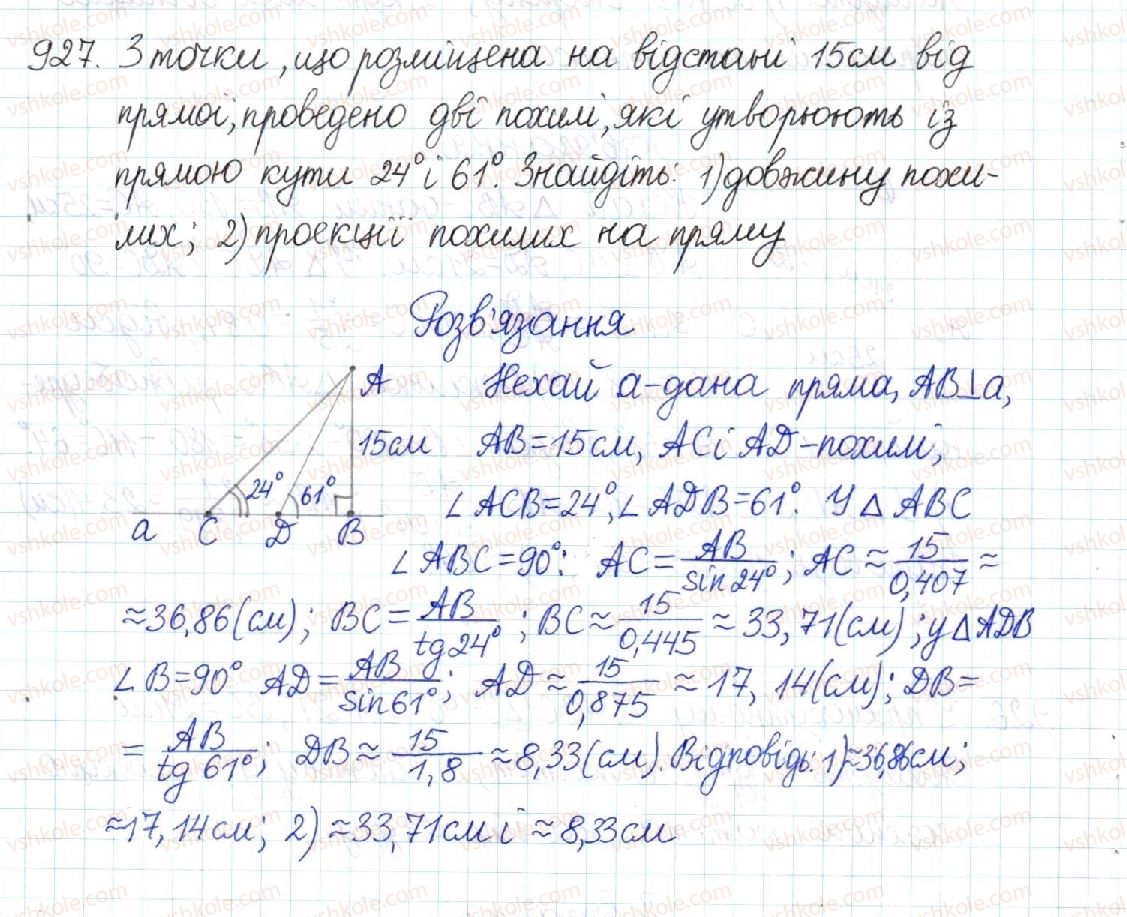 927. З точки, що розміщена на відстані 15см від
прямої, проведено дві похилі, які утворюють із
прямою кути 24° і 61°. Знайдіть: 1) довжину похи-
лих; 2) проекції похилих на пряму
Розв'язання
A
15см
24° 61°
a C D B
Нехай a-дана пряма, AB⊥a,
AB=15см, AC і AD-похилі,
∠ACB=24°, ∠ADB=61°. У △ABC
∠ABC=90°: AC=AB/sin24°; AC≈15/0,407≈
≈36,86(см); BC=AB/tg24°; BC≈15/0,445≈33,71(см); у △ADB
∠B=90° AD=AB/sin61°; AD≈15/0,875≈17,14(см); DB=
=AB/tg61°; DB≈15/1,8≈8,33(см). Відповідь: 1)≈36,86см;
≈17,14см; 2)≈33,71см і ≈8,33см
vshkole.com